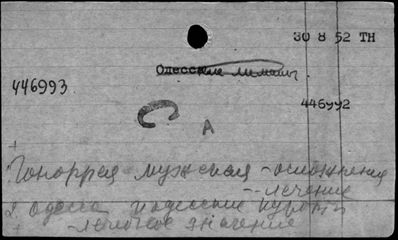 30 8 52 ТН
Одесские лиманы
446993
446992
С А
1. Гоноррея мужская - осложнения
-- лечение
2. Одесса и одесские курорты
- лечебное значение